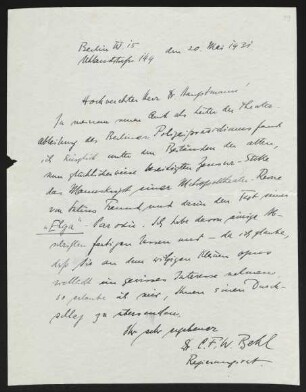 Berlin W 15
Uhlandstraße 194 den 20. Mai 1921
Hochverehrter Herr Dr. Hauptmann!
In meinem neuen Amt als Leiter der Theater-
abteilung des Berliner Polizeipräsidiums fand
ich kürzlich unter den Beständen der alten,
nun glücklicherweise beseitigten Zensur-Stelle
das Manuskript einer Metropoltheater Revue
von Julius Freund und darin den Text einer
"Elga"-Parodie. Ich habe davon einige Ab-
schriften fertigen lassen und – da ich glaube,
daß Sie an dem witzigen kleinen opus
vielleicht ein gewisses Interesse nehmen –
so erlaube ich mir, Ihnen einen Durch-
schlag zu übersenden.
Ihr sehr ergebener
Dr. C.F.W. Behl
Regierungsrat.